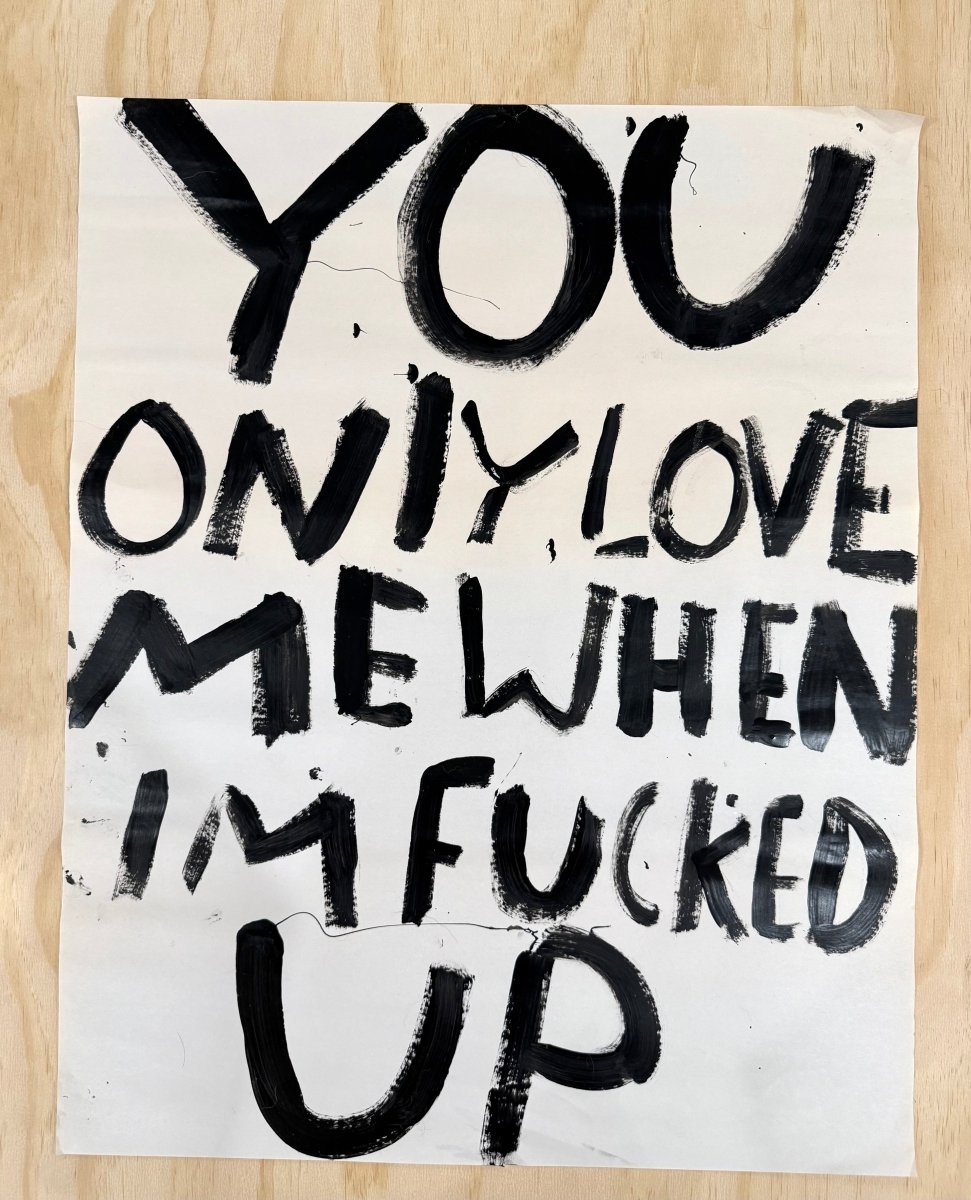 YOU
ONLY LOVE
ME WHEN
IM FUCKED
UP